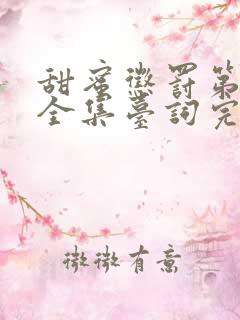 甜蜜懲罰第
全集臺詞完
微微有意